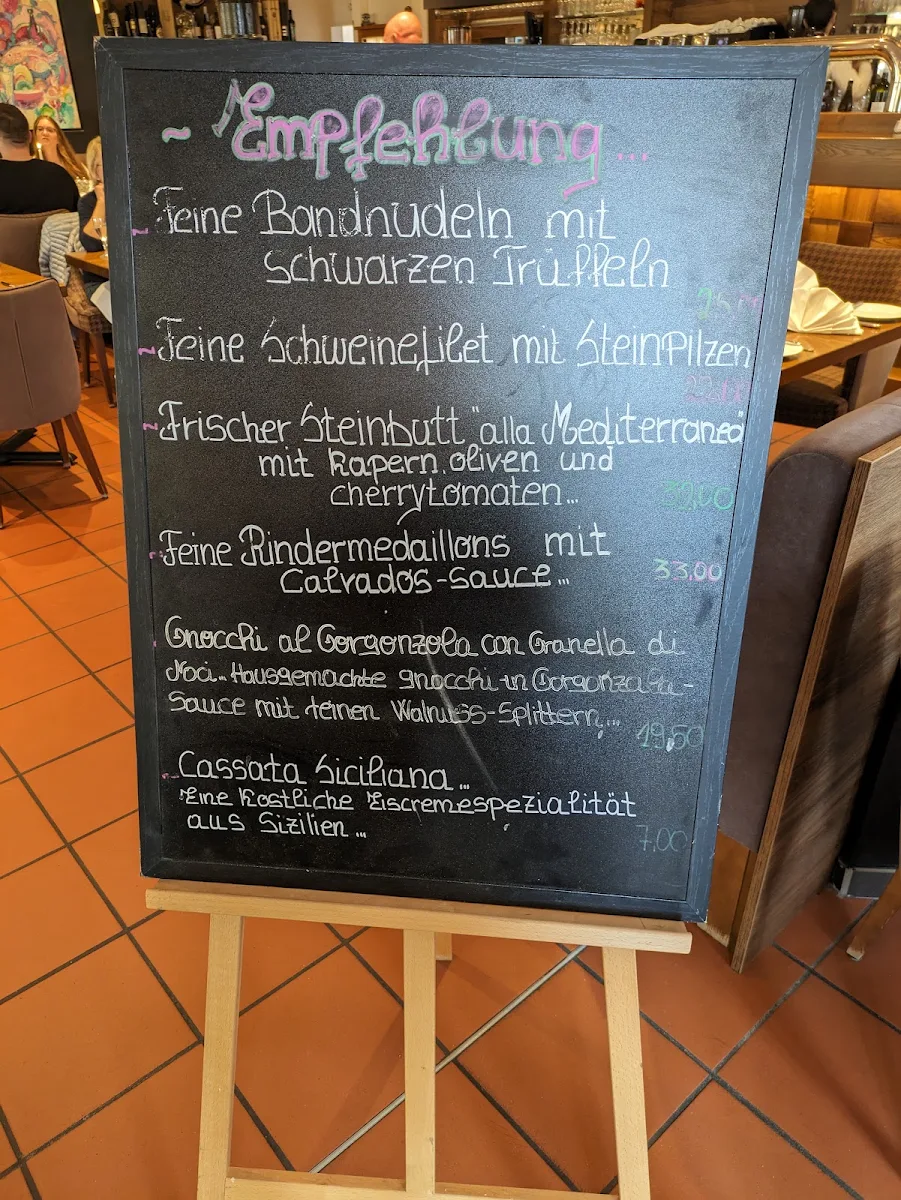 ~ Empfehlung...
~ Feine Bandnudeln mit
schwarzen Trüffeln
~ Feine Schweinefilet mit Steinpilzen
~ Frischer Steinbutt "alla Mediterranea"
mit Kapern, oliven und
cherrytomaten...
39,00
~ Feine Rindermedaillons mit
Calvados-Sauce...
33,00
Gnocchi al Gorgonzola con Granella di
Noci.. Hausgemachte gnocchi in Gorgonzola-
Sauce mit feinen Walnuss-Splittern,...
19,50
- Cassata Siciliana...
Eine Köstliche Eiscremespezialität
aus Sizilien...
7,00